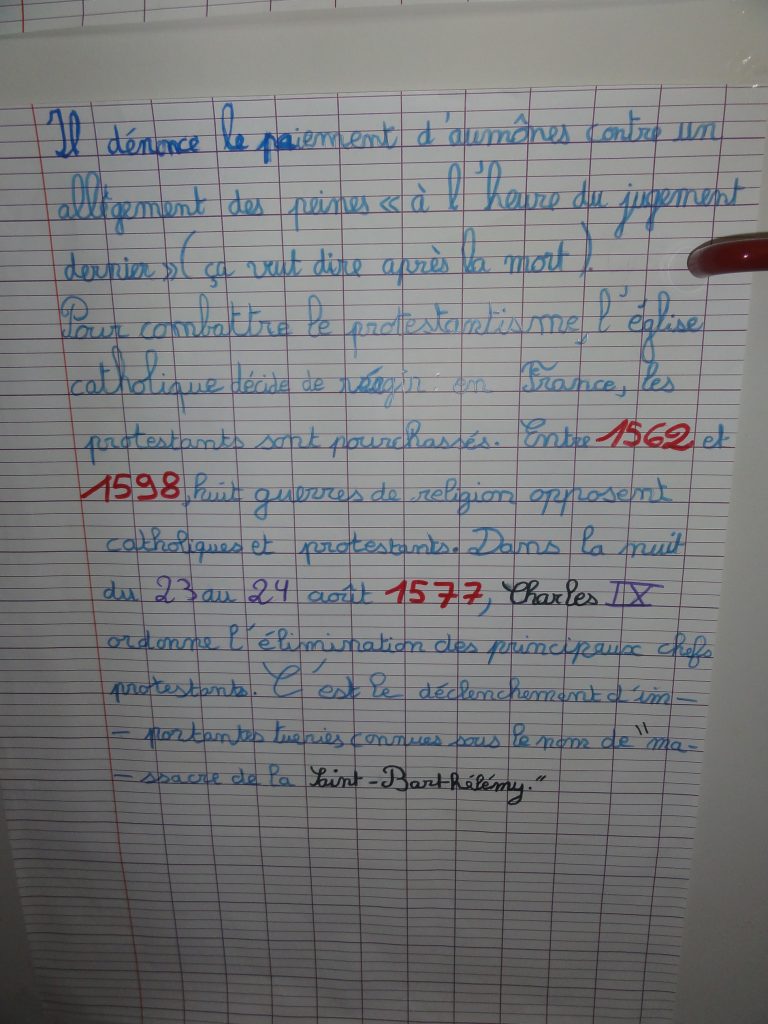 Il dénonce le paiement d'aumônes contre un
allègement des peines « à l'heure du jugement
dernier » (ça veut dire après la mort).
Pour combattre le protestantisme, l'église
catholique décide de réagir. en France, les
protestants sont pourchassés. Entre 1562 et
1598, huit guerres de religion opposent
catholiques et protestants. Dans la nuit
du 23 au 24 août 1577, Charles IX
ordonne l'élimination des principaux chefs
protestants. C'est le déclenchement d'im-
- portantes tueries connues sous le nom de "ma-
- ssacre de la Saint-Barthélémy."